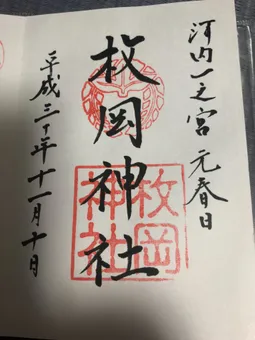 河内一之宮 元春日
枚岡神社
枚岡神社
平成三十年十一月十日